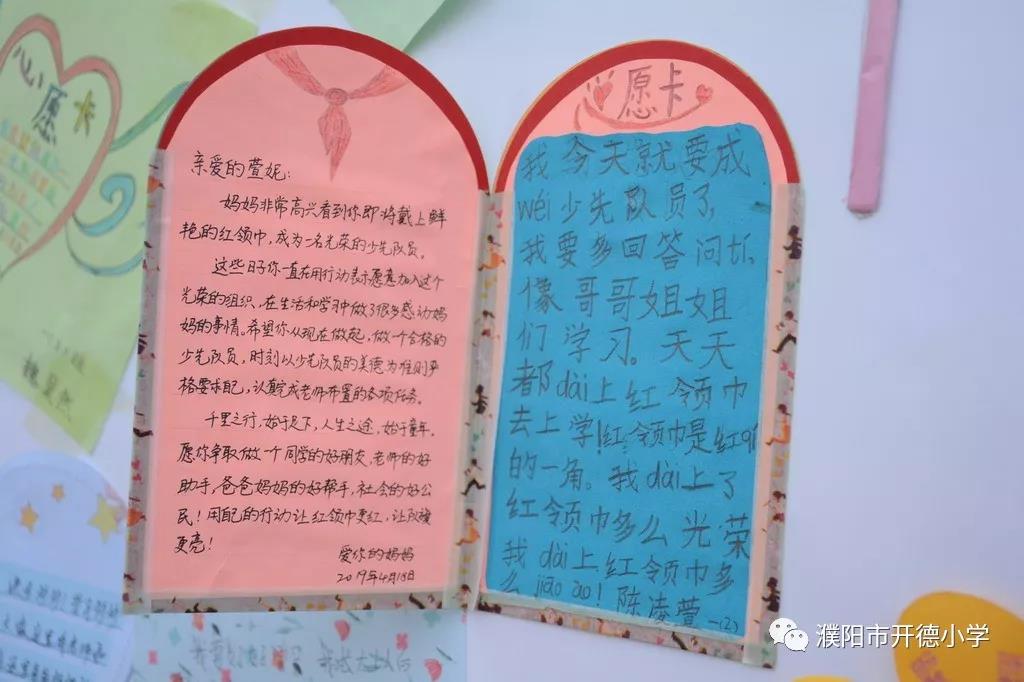 心愿卡
亲爱的萱妮：
妈妈非常高兴看到你即将戴上鲜
艳的红领巾，成为一名光荣的少先队员。
这些日子你一直在用行动表示愿意加入这个
光荣的组织，在生活和学习中做了很多感动妈
妈的事情。希望你从现在做起，做一个合格的
少先队员，时刻以少先队员的美德为准则严
格要求自己，认真完成老师布置的各项任务。
千里之行，始于足下，人生之途，始于童年。
愿你争取做一个同学的好朋友，老师的好
助手，爸爸妈妈的好帮手，社会的好公
民！用自己的行动让红领巾更红，让队旗
更亮！
爱你的妈妈
2019年4月18日
心愿卡
我今天就要成
wéi少先队员了，
我要多回答问tí，
像哥哥姐姐
们学习。天天
都dài上红领巾
去上学！红领巾是红qí
的一角。我dài上了
红领巾多么光荣
我dài上红领巾多
么jiāo ào！陈凌萱 一(2)
濮阳市开德小学